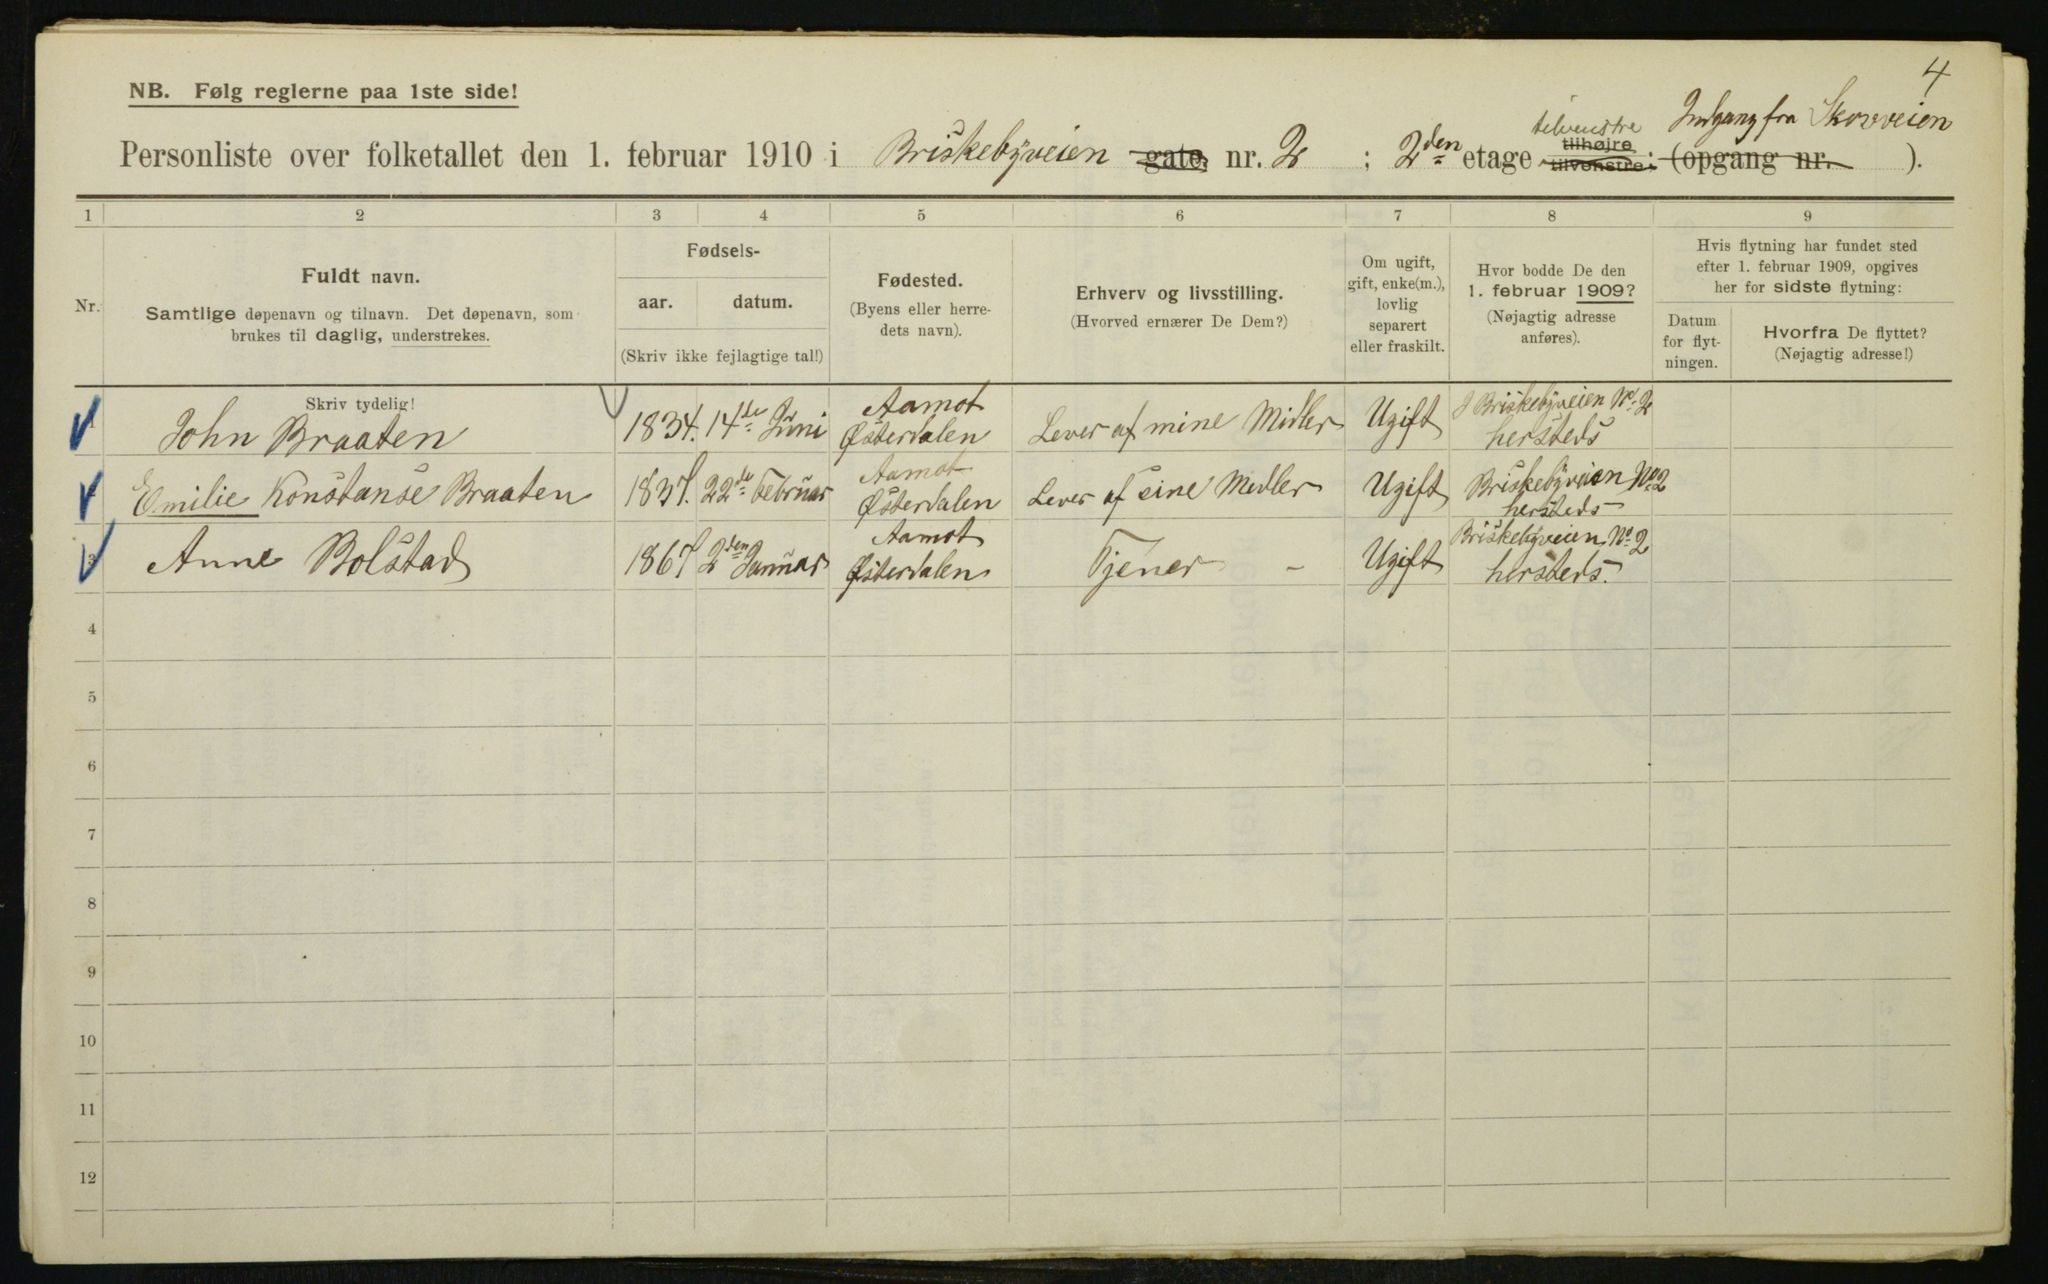 4
NB. Følg reglerne paa 1ste side!
tilvenstre Indgang fra Skovveien
Personliste over folketallet den 1. februar 1910 i Briskebyveien gate, nr. 2 ; 2den etage tilhøjre tilvenstre; (opgang nr. ).
1 2 3 4 5 6 7 8 9
Nr.
Fuldt navn.
Samtlige døpenavn og tilnavn. Det døpenavn, som
brukes til daglig, understrekes.
Fødsels-
aar. datum.
(Skriv ikke fejlagtige tal!)
Fødested.
(Byens eller herre-
dets navn).
Erhverv og livsstilling.
(Hvorved ernærer De Dem?)
Om ugift,
gift, enke(m.),
lovlig
separert
eller fraskilt.
Hvor bodde De den
1. februar 1909?
(Nøjagtig adresse
anføres).
Hvis flytning har fundet sted
efter 1. februar 1909, opgives
her for sidste flytning:
Datum
for flyt-
ningen.
Hvorfra De flyttet?
(Nøjagtig adresse!)
Skriv tydelig!
1 John Braaten 1834. 14de Juni Aamot Østerdalen Lever af mine Midler Ugift I Briskebyveien No 2 hersteds
Emilie Konstanse Braaten 1837. 22de Februar Aamot Østerdalen Lever af sine Midler Ugift Briskebyveien No 2 hersteds
3 Anne Bolstad 1867 2den Januar Aamot Østerdalen Tjener - Ugift Briskebyveien No 2 hersteds.
4
5
6
7
8
9
10
11
12